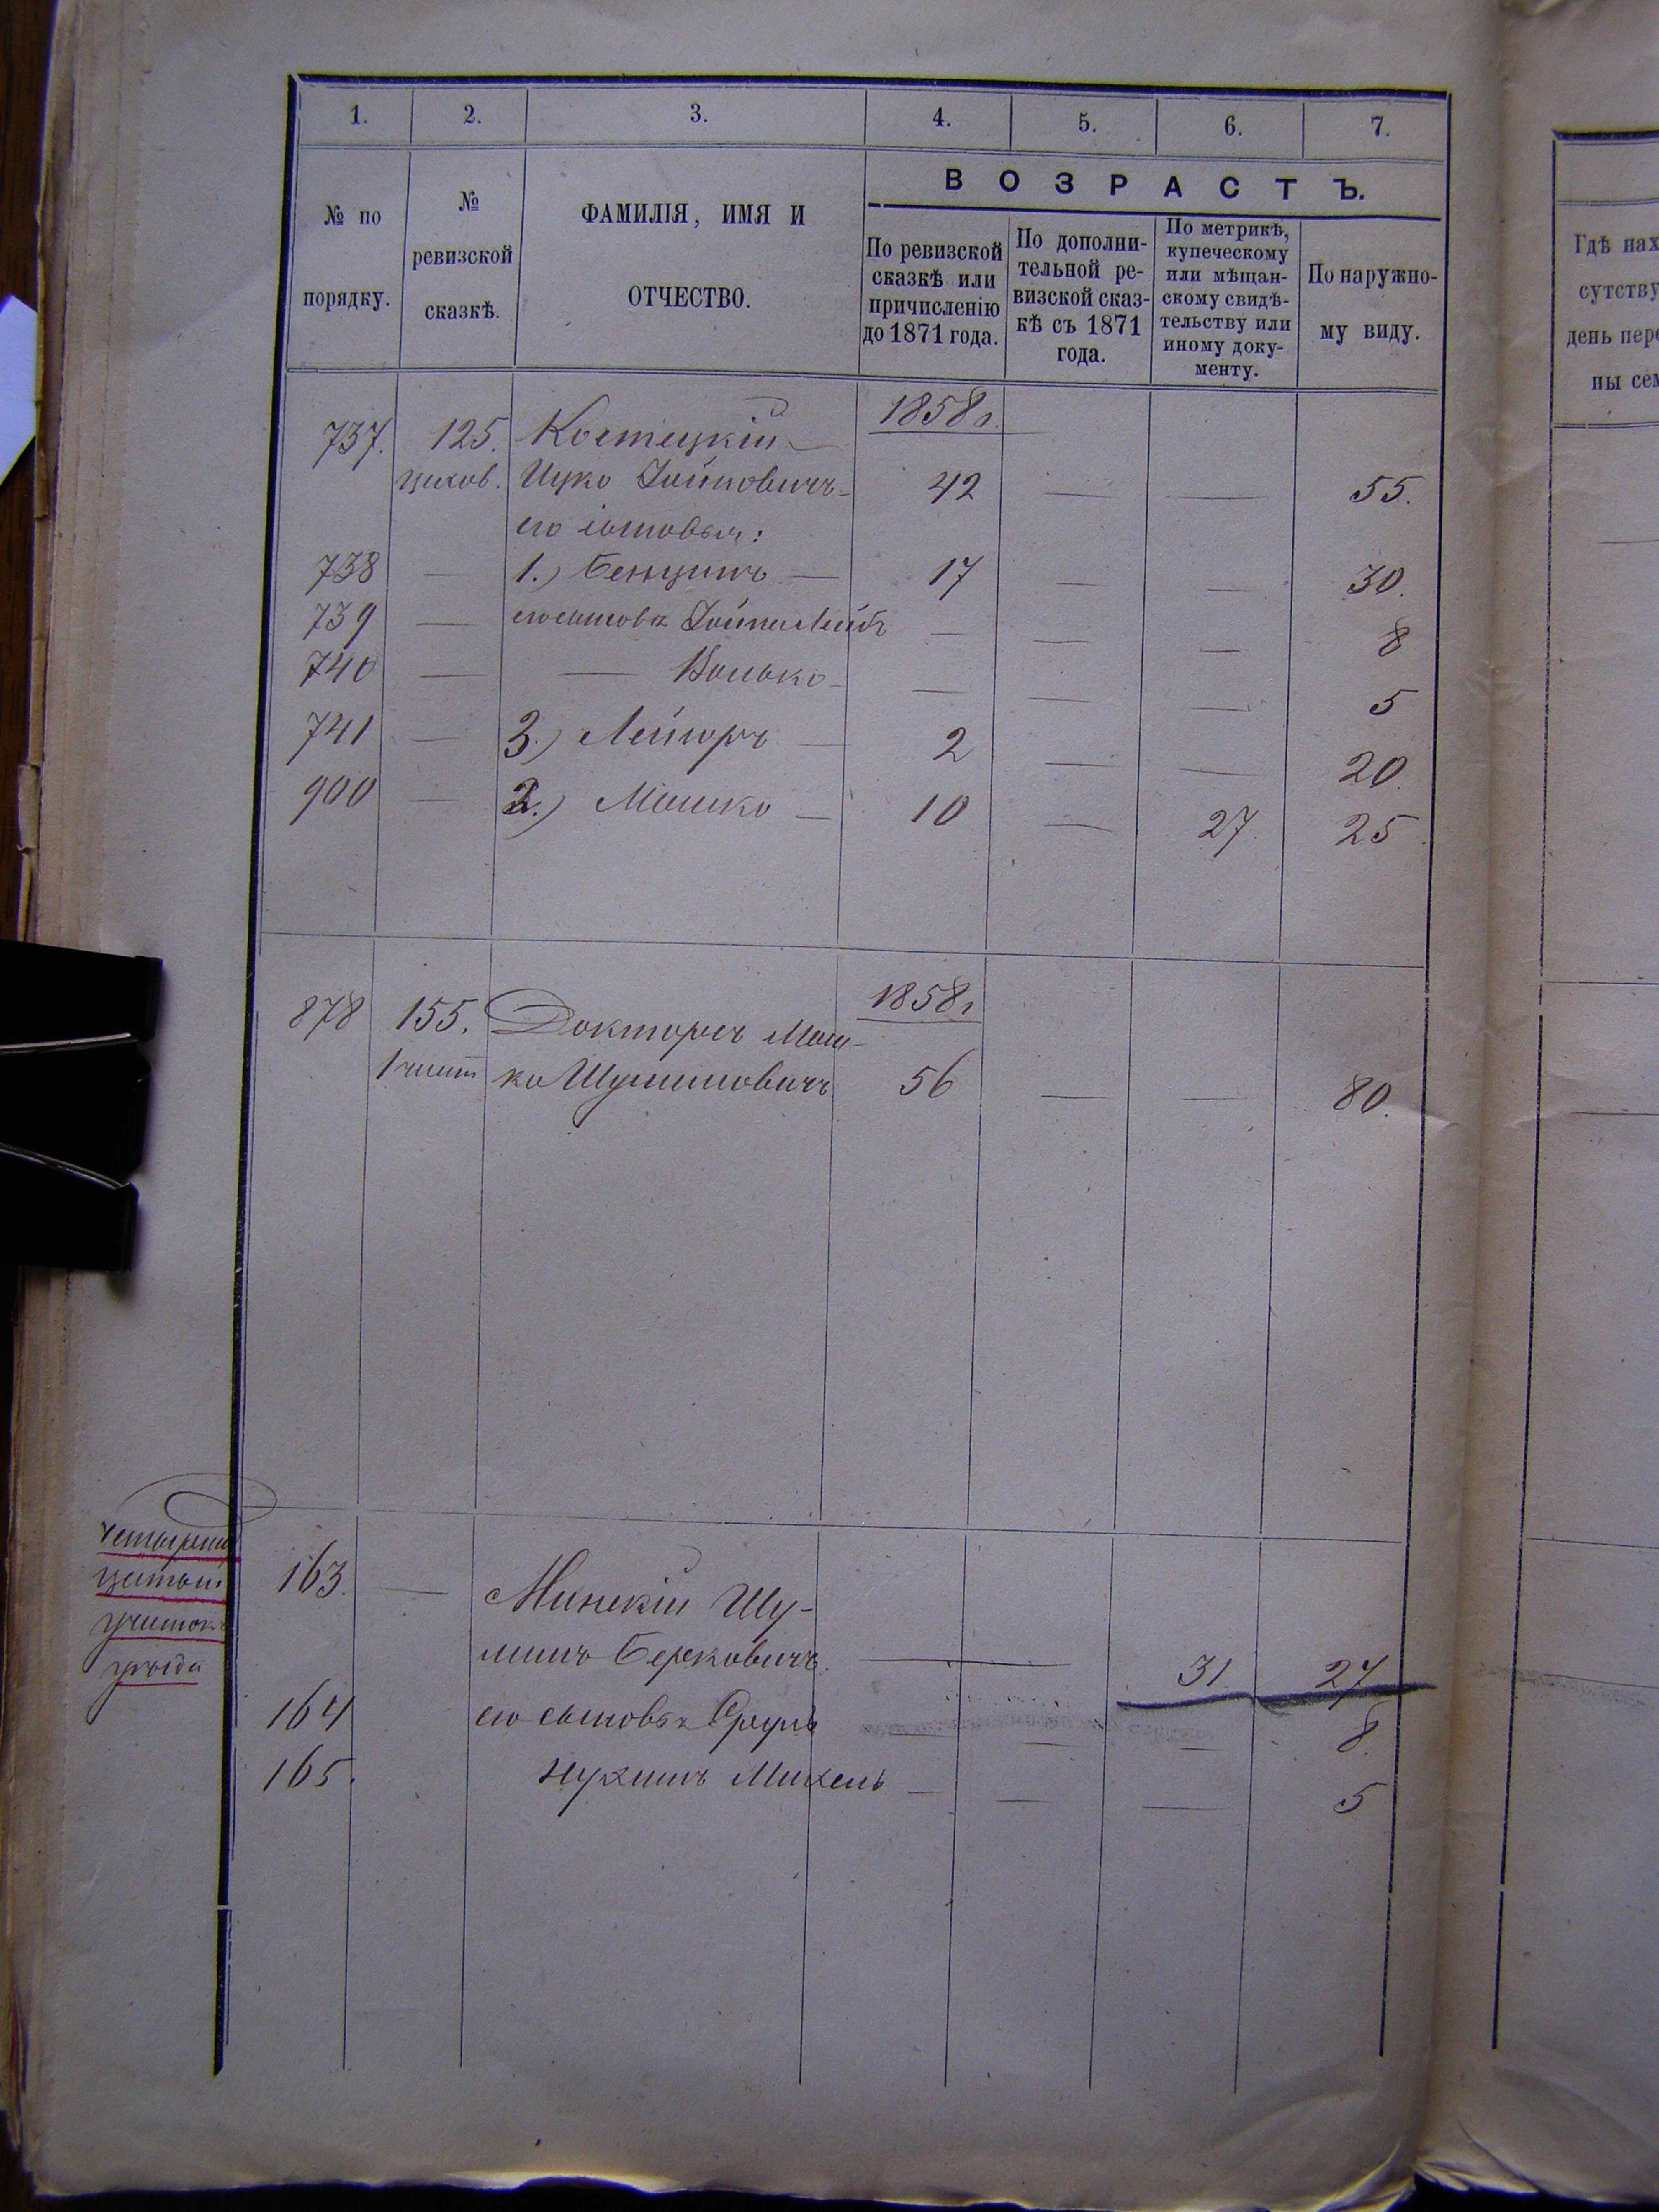 1. 2. 3. 4. 5. 6. 7.
№ по порядку.
№ ревизской сказкѣ.
ФАМИЛІЯ, ИМЯ И ОТЧЕСТВО.
ВОЗРАСТЪ.
По ревизской сказкѣ или причисленію до 1871 года.
По дополнительной ревизской сказкѣ съ 1871 года.
По метрикѣ, купеческому или мѣщанскому свидѣтельству или иному документу.
По наружному виду.
Гдѣ нах
сутству
день пере
ны сем
1858 г.
737. 125. Костецкій
Ицко 42 — — 55.
его сыновья:
738 — 1.) Бенцинъ — 17 — — 30.
739 — его сыновья — — — 8
740 — — Волько — — — — 5
741 — 3.) Лейзоръ — 2 — — 20.
900 — 2.) Мошко — 10 — 27. 25.
1858 г
878 155. Докторъ Мош-
ко Шулимовичъ 56 — — 80.
участокъ
уѣзда
163. — Минскій Шу-
лимъ Берковичъ. — 31. 27
164 его сыновья Сруль — — — 8.
165. Нухимъ Михель — — — 5